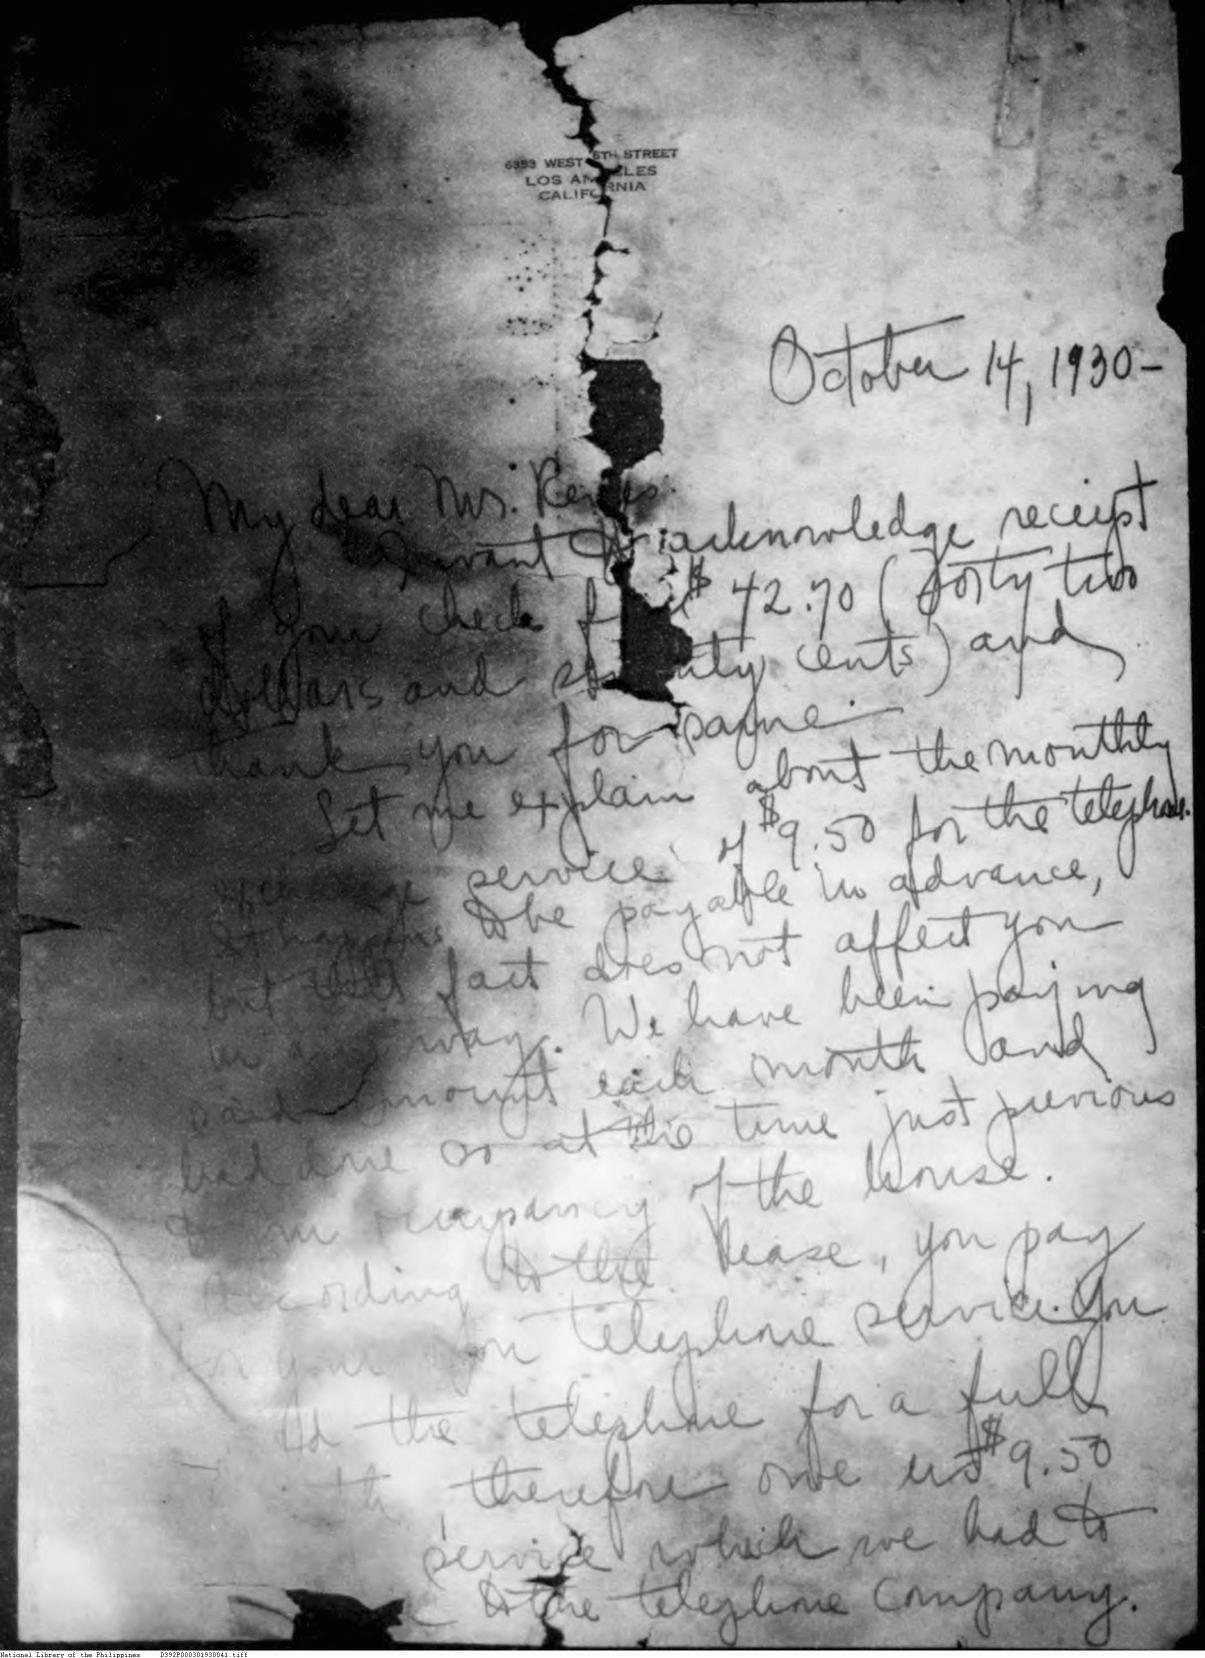 6353 WEST 6TH STREET
LOS ANGELES
CALIFORNIA
October 14, 1930-
My dear Mr. Reyes:
I want to acknowledge receipt
of your check for $42.70 (forty two
dollars and seventy cents) and
thank you for same.
Let me explain about the monthly
service of $9.50 for the telephone.
It happens to be payable in advance,
but that fact does not affect you
in any way. We have been paying
said amount each month and
had done so at the time just previous
to our occupancy of the house.
According to the lease, you pay
for your own telephone service. You
had the telephone for a full
th, therefore owe us $9.50
service which we had to
to the telephone company.
National Library of the Philippines D392P000301930041.tiff